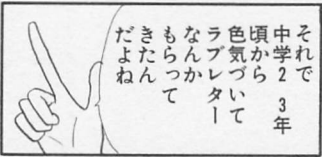 それで
中学2 3年
頃から
色気づいて
ラブレター
なんか
もらって
きたん
だよね